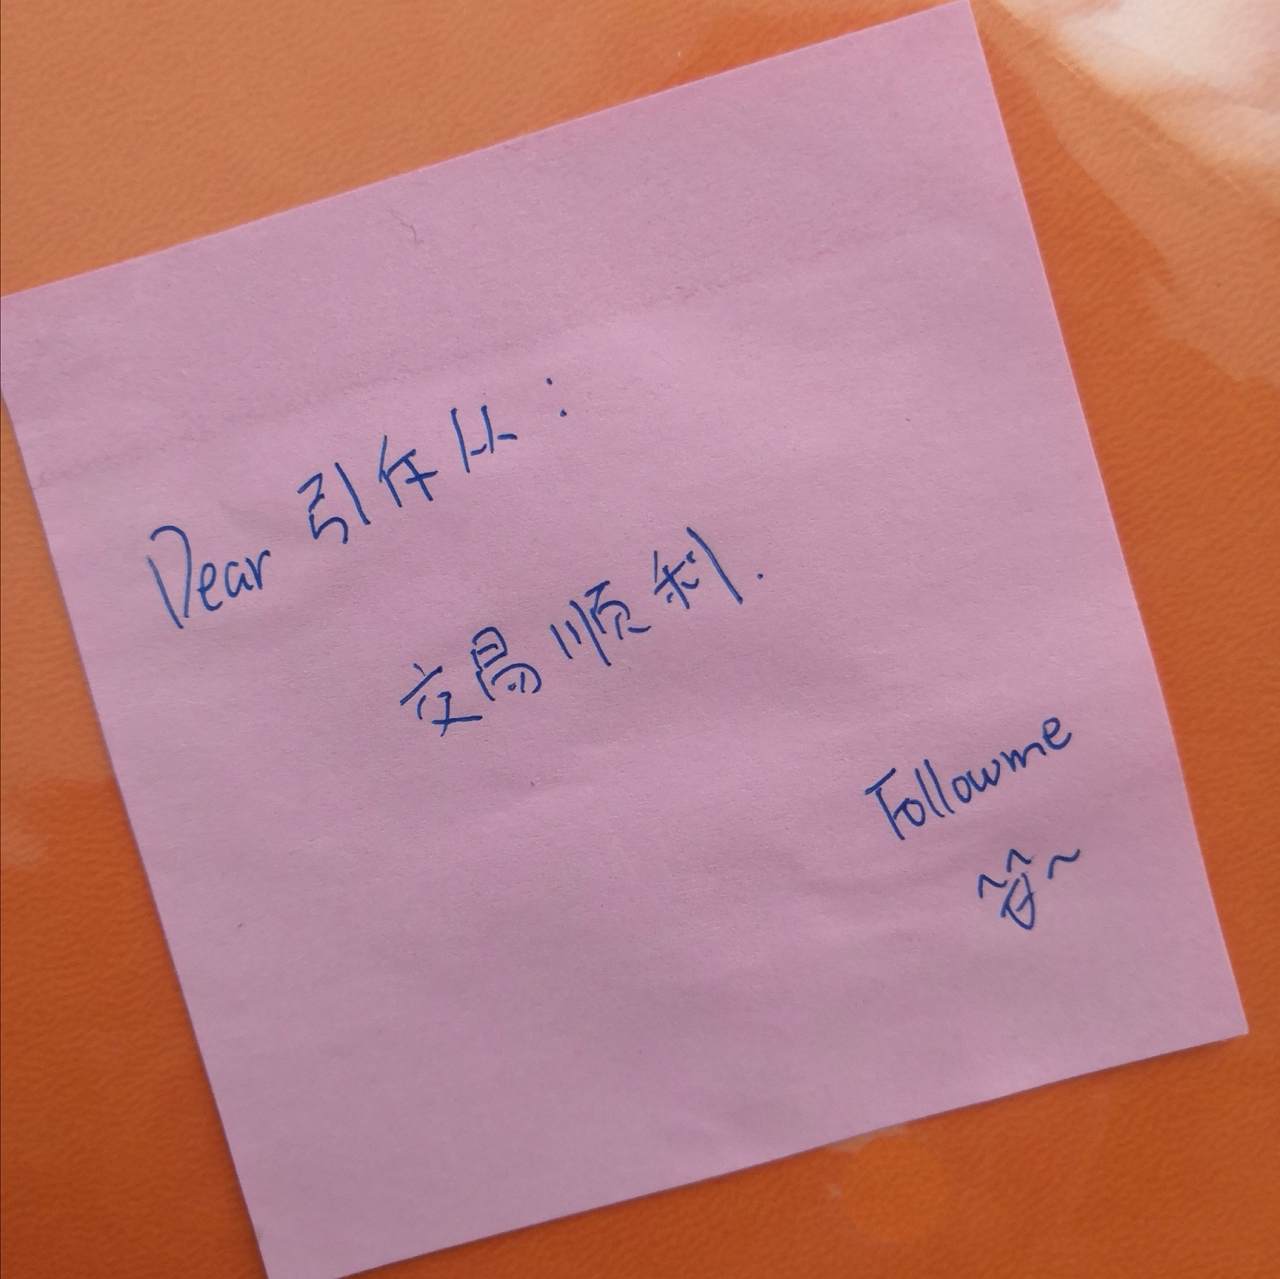 Dear 引仔从:
交易顺利.
Followme